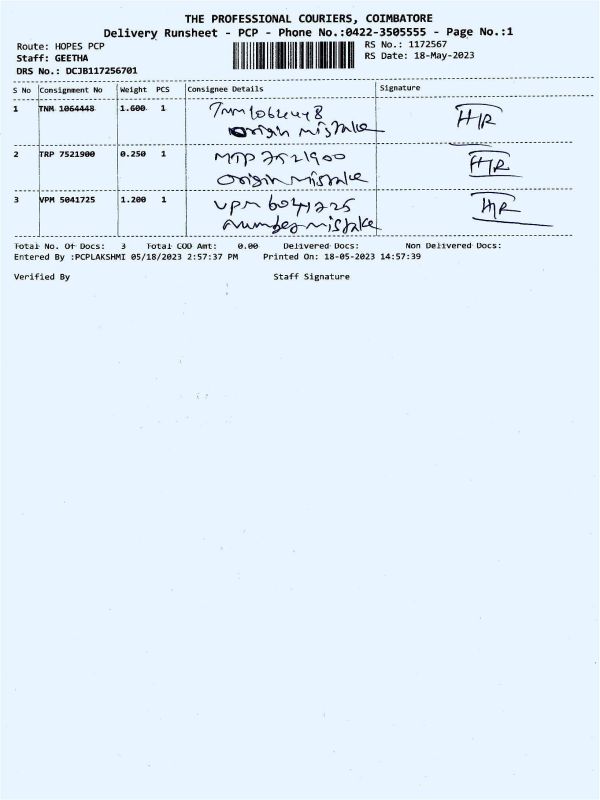 THE PROFESSIONAL COURIERS, COIMBATORE
Delivery Runsheet - PCP - Phone No.:0422-3505555 - Page No.:1
Route: HOPES PCP RS No.: 1172567
Staff: GEETHA RS Date: 18-May-2023
DRS No.: DCJB117256701
S No Consignment No Weight PCS Consignee Details Signature
1 TNM 1064448 1.600 1 TNM 1064448 HR
origin mistake
2 TRP 7521900 0.250 1 MTP 7521900 HR
origin mistake
3 VPM 5041725 1.200 1 VPM 6041725 HR
number mistake
Total No. Of Docs: 3 Total COD Amt: 0.00 Delivered Docs: Non Delivered Docs:
Entered By :PCPLAKSHMI 05/18/2023 2:57:37 PM Printed On: 18-05-2023 14:57:39
Verified By Staff Signature